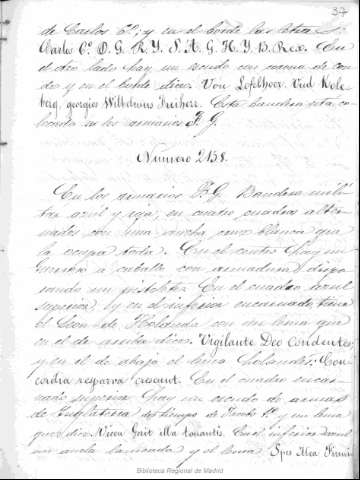 37
de Carlos 6º; y en el borde las letras
Carlos Cº D. G. R. Y. S. A. G. H. Y. B. Rex. En
el otro lado hay un escudo con corona de con
de y en el borde dice: Von Lofelhoer. Vud Kole-
berg, georgius Wilhelmus Freiherr. Esta bandera esta co
locada en los armarios F. G.
Número 2158.
En los armarios F. G. Bandera mili
tar azul y roja, en cuatro cuadros alter
nados con una ancha cruz blanca que
la ocupa toda. En el centro hay un
guerrero a caballo con armadura, dispa
rando un pistolete. En el cuadro azul
superior y en el inferior encarnado tiene
el Leon de Holanda con un lema que
en el de arriba dice: Vigilante Deo Confidentes
y en el de abajo el lema holandés: Con-
cordia res parva crescunt. En el cuadro encar-
nado superior hay un escudo de armas
de Inglaterra del tiempo de y un lema
que dice. En el inferior azul
un ancla y el lema: Spes Mea
Biblioteca Regional de Madrid